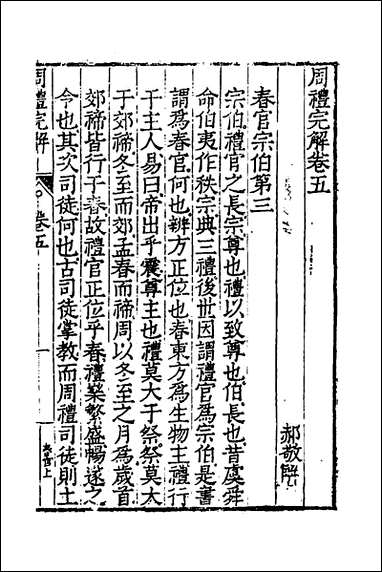 周禮完解卷五
郝敬解
春官宗伯第三
宗伯禮官之長宗尊也禮以致尊也伯長也昔虞舜
命伯夷作秩宗典三禮後世因謂禮官爲宗伯是書
謂爲春官何也辨方正位也春東方爲生物主禮行
于主人易曰帝出乎震尊主也禮莫大于祭祭莫大
于郊禘冬至而郊孟春而禘周以冬至之月爲歲首
郊禘皆行于春故禮官正位乎春禮樂繁盛暢遂之
令也其次司徒何也古司徒掌教而周禮司徒則土
周禮完解
卷五
一
春官上